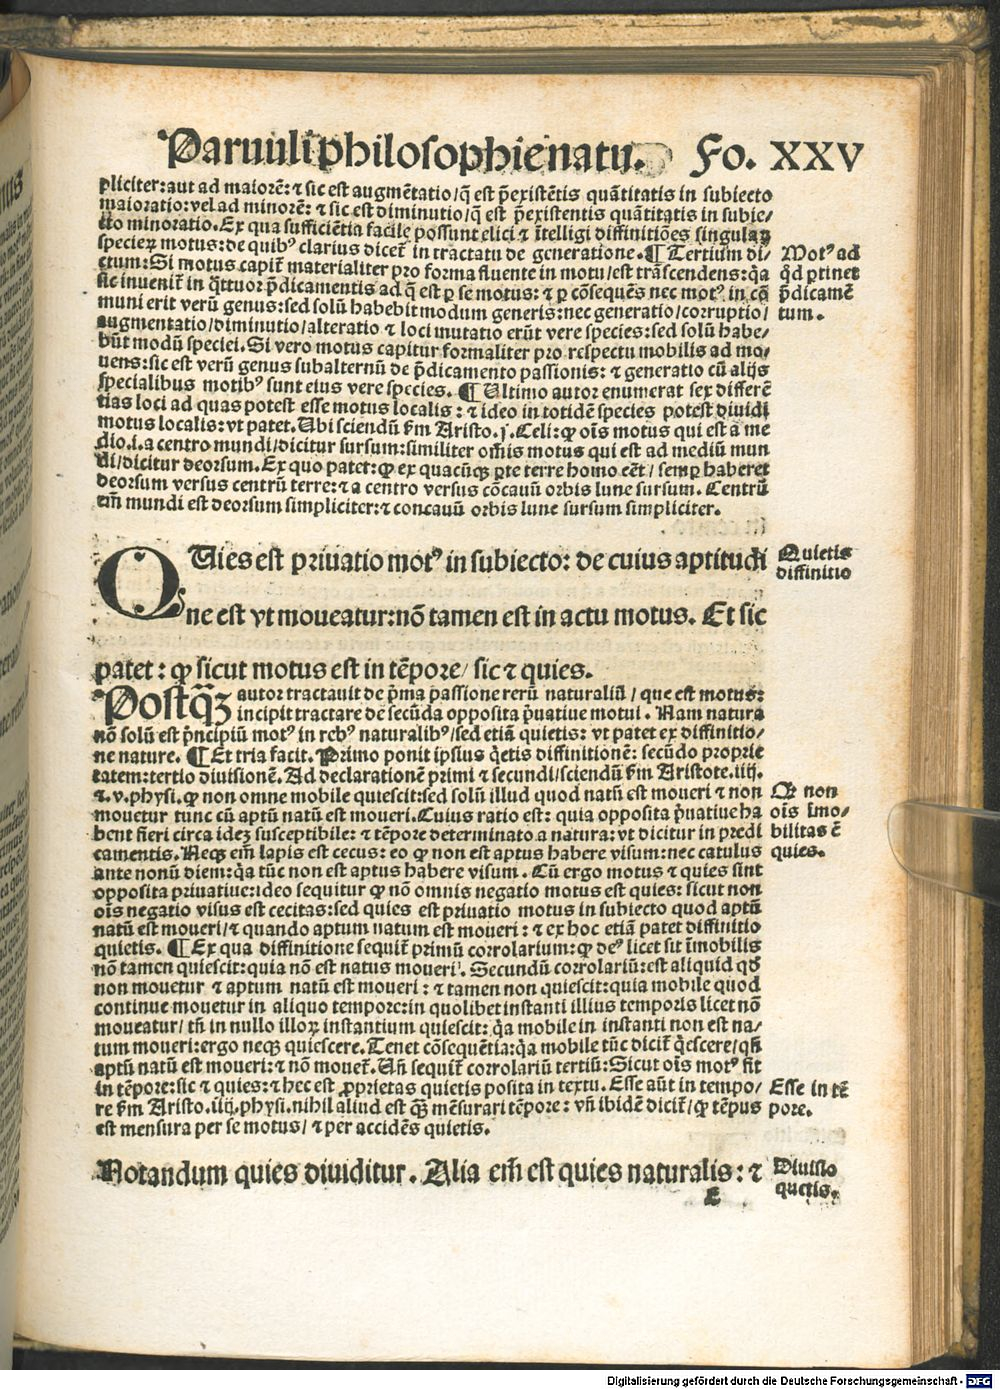 Paruuli philosophie natu. Fo. XXV
pliciter: aut ad maiorē: ⁊ sic est augmētatio/ q̄ est p̄existētis quātitatis in subiecto
maioratio: vel ad minorē: ⁊ sic est diminutio/ q̄ est p̄existentis quātitatis in subie/
cto minoratio. Ex qua sufficiētia facile possunt elici ⁊ ītelligi diffinitiões singulaꝝ
specieꝝ motus: de quibꝰ clarius dicet᷑ in tractatu de generatione. ¶ Tertium di/
ctum: Si motus capit᷑ materialiter pro forma fluente in motu/ est trāscendens: q̄a
sic inuenit᷑ in q̄ttuor p̄dicamentis ad q̄ est ꝑ se motus: ⁊ ꝑ cōsequēs nec motꝰ in cō
muni erit verū genus: sed solū habebit modum generis: nec generatio/ corruptio/
augmentatio/ diminutio/ alteratio ⁊ loci mutatio erūt vere species: sed solū habe/
būt modū speciei. Si vero motus capitur formaliter pro respectu mobilis ad mo/
uens: sic est verū genus subalternū de p̄dicamento passionis: ⁊ generatio cū alijs
specialibus motibꝰ sunt eius vere species. ¶ Ultimo autor enumerat sex differē
tias loci ad quas potest esse motus localis: ⁊ ideo in totidē species potest diuidi
motus localis: vt patet. Ubi sciendū ẜm Aristo. j. Celi: ꝙ oīs motus qui est a me
dio. i. a centro mundi/ dicitur sursum: similiter om̄is motus qui est ad mediū mun
di/ dicitur deorsum. Ex quo patet: ꝙ ex quacūqꝫ ꝑte terre homo eēt/ semꝑ haberet
deorsum versus centrū terre: ⁊ a centro versus cōcauū orbis lune sursum. Centrū
em̄ mundi est deorsum simpliciter: ⁊ concauū orbis lune sursum simpliciter.
Motꝰ ad
q̄d ꝑtinet
p̄dicamē
tum.
QUies est priuatio motꝰ in subiecto: de cuius aptitudi
ne est vt moueatur: nō tamen est in actu motus. Et sic
patet: ꝙ sicut motus est in tēpore/ sic ⁊ quies.
Quietis
diffinitio
Postq̄ꝫ autor tractauit de p̄ma passione rerū naturaliū/ que est motus:
incipit tractare de secūda opposita p̄uatiue motui. Nam natura
nō solū est p̄ncipiū motꝰ in rebꝰ naturalibꝰ/ sed etiā quietis: vt patet ex diffinitio/
ne nature. ¶ Et tria facit. Primo ponit ipsius q̄etis diffinitionē: secūdo proprie
tatem: tertio diuisionē. Ad declarationē primi ⁊ secundi/ sciendū ẜm Aristote. iiij.
⁊. v. physi. ꝙ non omne mobile quiescit: sed solū illud quod natū est moueri ⁊ non
mouetur tunc cū aptū natū est moueri. Cuius ratio est: quia opposita p̄uatiue ha
bent fieri circa ideꝫ susceptibile: ⁊ tēpore determinato a natura: vt dicitur in predi
camentis. Neqꝫ em̄ lapis est cecus: eo ꝙ non est aptus habere visum: nec catulus
ante nonū diem: q̄a tūc non est aptus habere visum. Cū ergo motus ⁊ quies sint
opposita priuatiue: ideo sequitur ꝙ nō omnis negatio motus est quies: sicut non
oīs negatio visus est cecitas: sed quies est priuatio motus in subiecto quod aptū
natū est moueri/ ⁊ quando aptum natum est moueri: ⁊ ex hoc etiā patet diffinitio
quietis. ¶ Ex qua diffinitione sequit᷑ primū corrolarium: ꝙ deꝰ licet sit īmobilis
nō tamen quiescit: quia nō est natus moueri. Secundū corrolariū: est aliquid qd̄
non mouetur ⁊ aptum natū est moueri: ⁊ tamen non quiescit: quia mobile quod
continue mouetur in aliquo tempore: in quolibet instanti illius temporis licet nō
moueatur/ tn̄ in nullo illoꝝ instantium quiescit: q̄a mobile in instanti non est na/
tum moueri: ergo neqꝫ quiescere. Tenet cōsequētia: q̄a mobile tūc dicit᷑ q̄escere/ qn̄
aptū natū est moueri: ⁊ nō mouet᷑. Un̄ sequit᷑ corrolariū tertiū: Sicut oīs motꝰ fit
in tēpore: sic ⁊ quies: ⁊ hec est ꝓprietas quietis posita in textu. Esse aūt in tempo/
re ẜm Aristo. iiij. physi. nihil aliud est q̄ꝫ mēsurari tēpore: vn̄ ibidē dicit᷑/ ꝙ tēpus
est mensura per se motus/ ⁊ per accidēs quietis.
Qꝫ non
oīs īmo/
bilitas ē
quies.
Esse in tē
pore.
Notandum quies diuiditur. Alia em̄ est quies naturalis: ⁊
Diuisio
quetis.
E
Digitalisierung gefördert durch die Deutsche Forschungsgemeinschaft - DFG